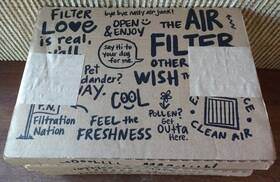 FILTER
LOVE
is real,
bye bye nasty air junk!
OPEN
& ENJOY
Say Hi to
your dog
for me.
THE AIR
FILTER
OTHER
WISH TH
Pet
dander?
WAY.
COOL
P.N.
Filtration
Nation
FEEL the
FRESHNESS
POLLEN?
Get
Outta
Here.
CE
CLEAN AIR